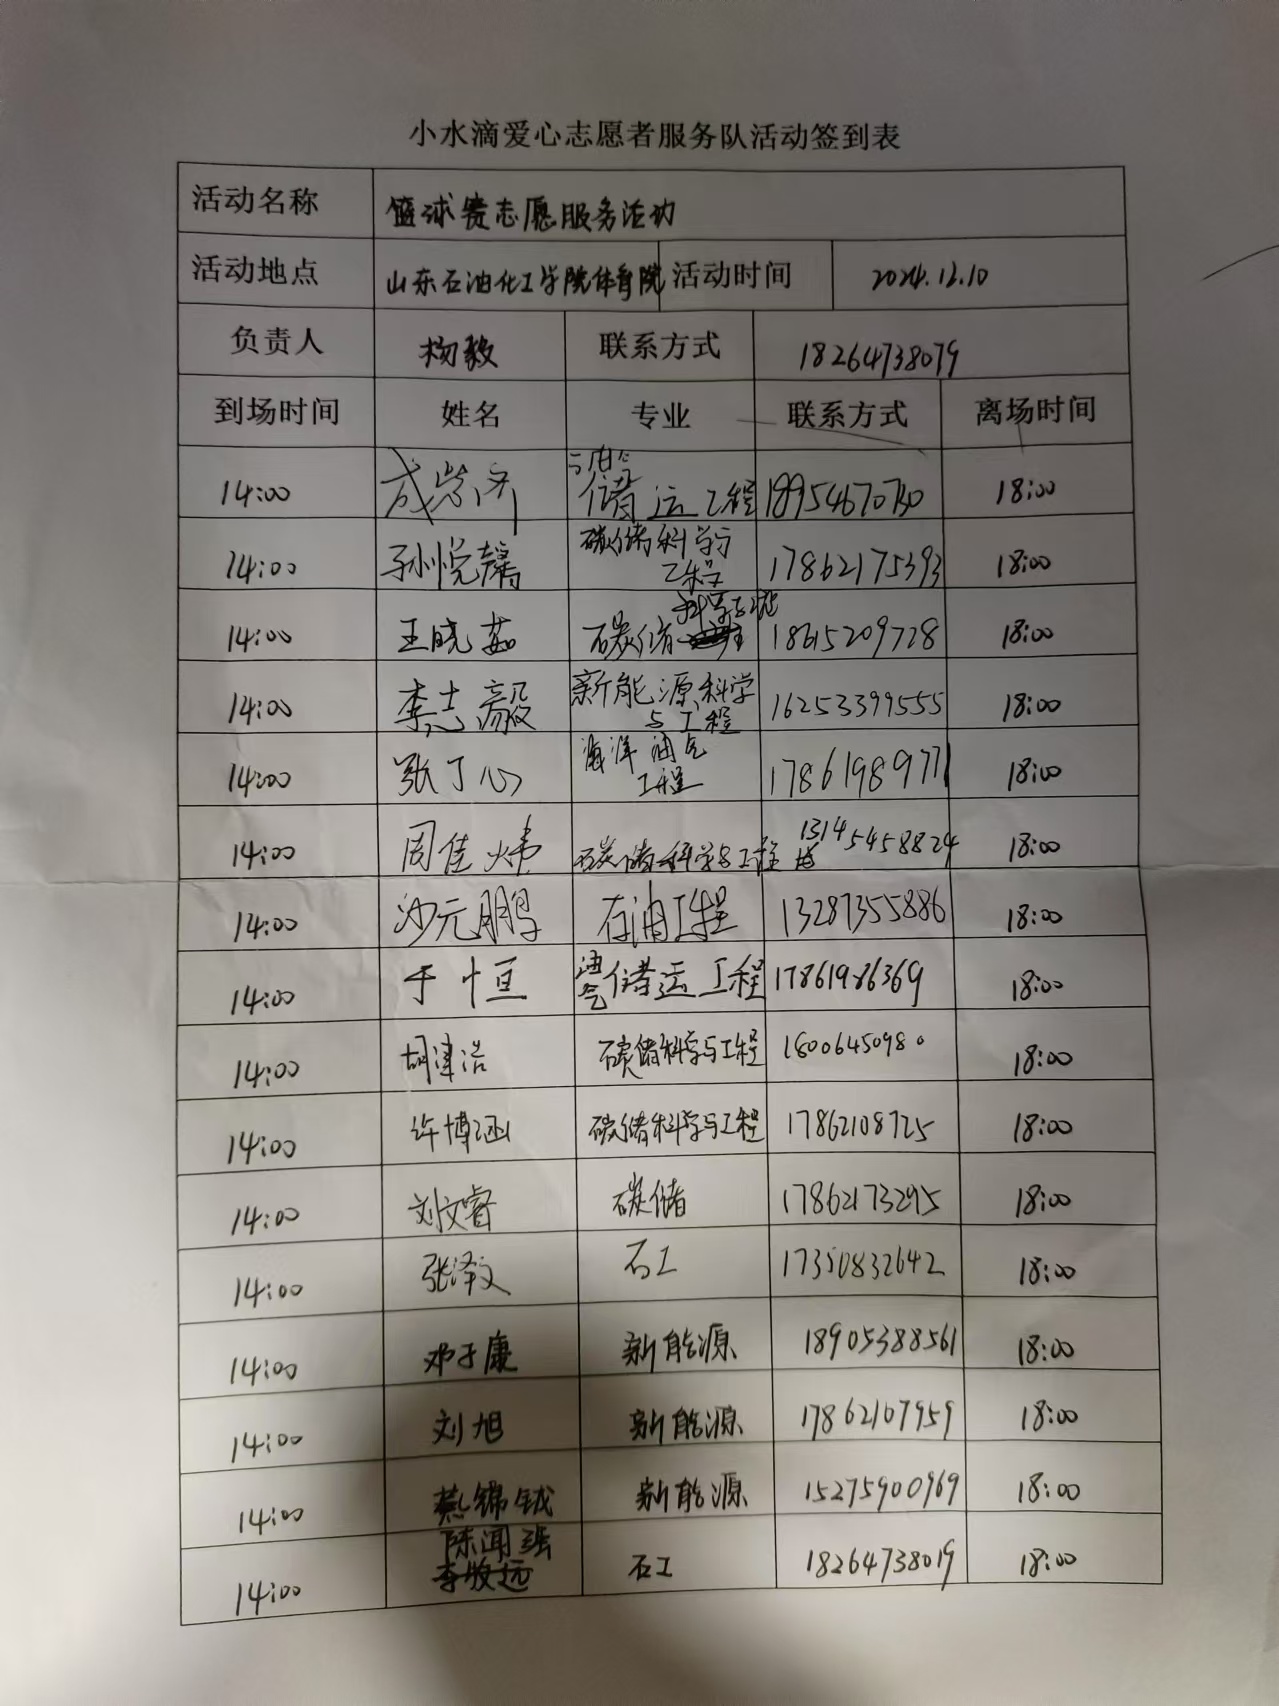 小水滴爱心志愿者服务队活动签到表
活动名称 篮球赛志愿服务活动
活动地点 山东石油化工学院体育院 活动时间 2024.12.10
负责人 杨毅 联系方式 18264738079
到场时间 姓名 专业 联系方式 离场时间
14:00 储运工程 18954670730 18:00
14:00 孙悦馨 碳储科学与工程 17862175393 18:00
14:00 王晓茹 碳储科学与工程 18615209728 18:00
14:00 李志毅 新能源科学与工程 16253399555 18:00
14:00 张丁心 海洋油气工程 17861989771 18:00
14:00 周佳炜 碳储科学与工程 13145458824 18:00
14:00 沙元鹏 石油工程 13287355886 18:00
14:00 于恒 油气储运工程 17861986369 18:00
14:00 胡津浩 碳储科学与工程 18006450980 18:00
14:00 许博涵 碳储科学与工程 17862108725 18:00
14:00 刘文睿 碳储 17862173295 18:00
14:00 张泽文 石工 17350832642 18:00
14:00 邓于康 新能源 18905388561 18:00
14:00 刘旭 新能源 17862107959 18:00
14:00 蔡锦钺 新能源 15275900969 18:00
14:00 陈闻强 石工 18264738019 18:00